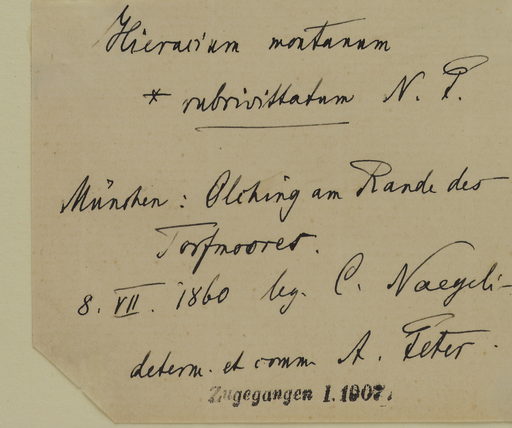 Hieracium montanum
* rubrivittatum N. P.
München: Olching am Rande des
Torfmoores.
8. VII. 1860 leg. C. Naegeli -
determ. et comm. A. Peter.
Zugegangen 1.1907.